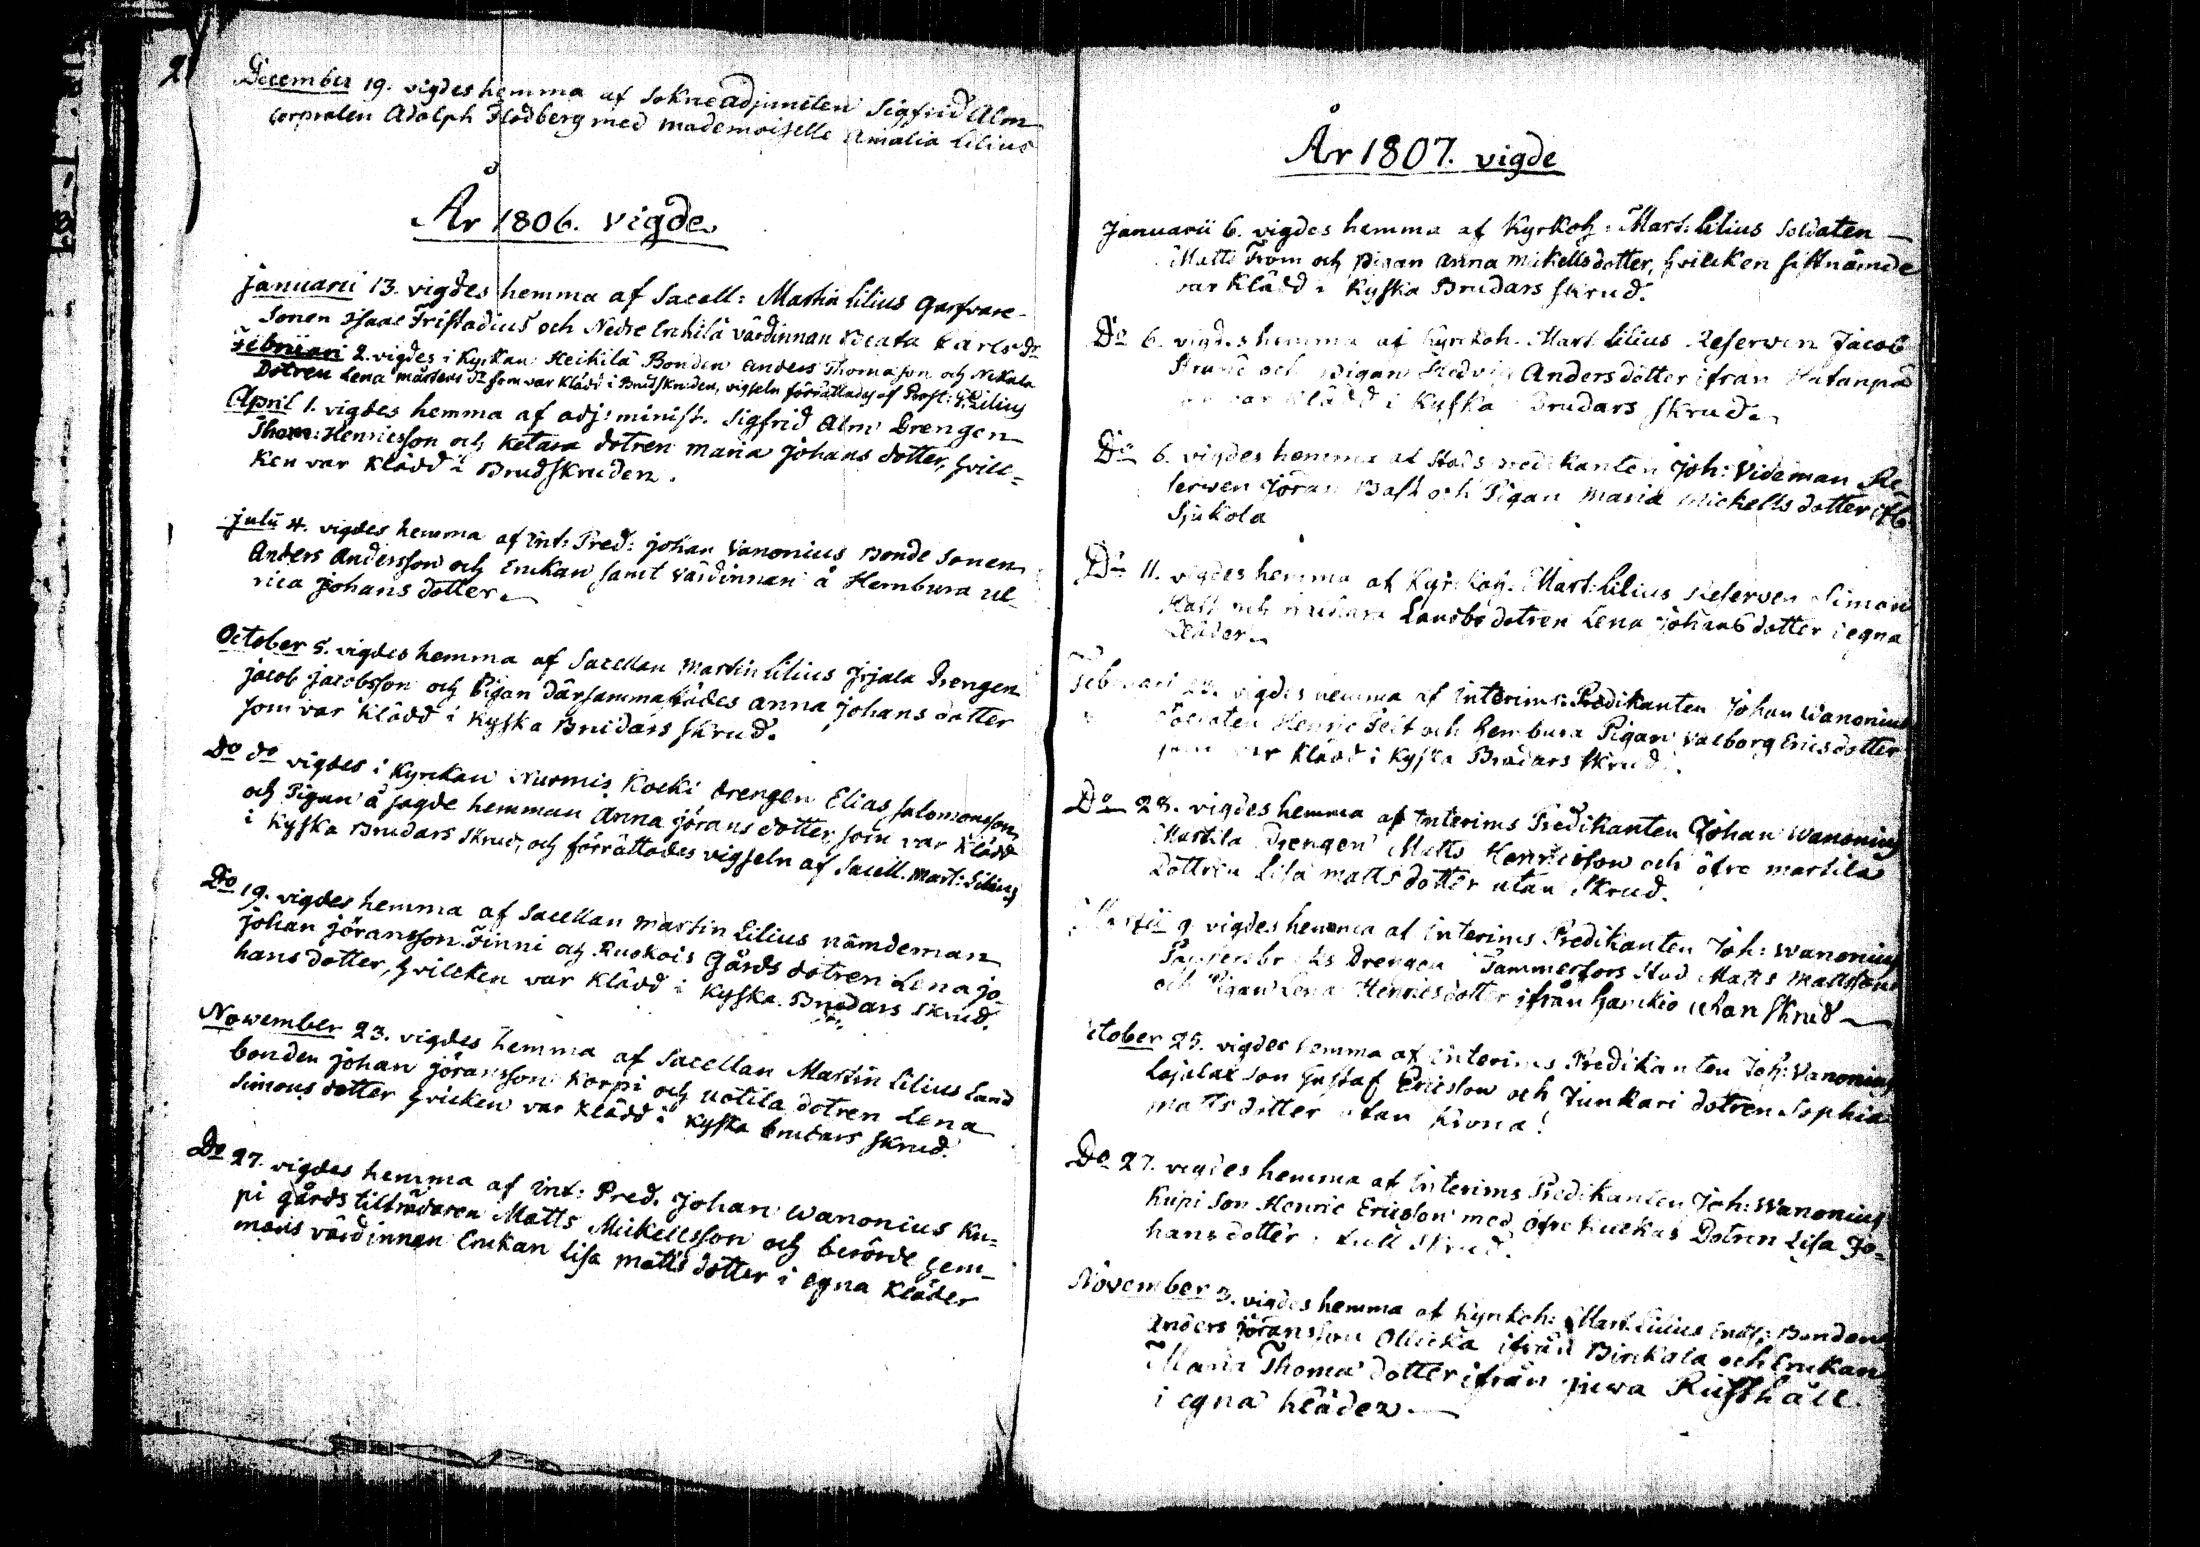 2
December 19. vigdes hemma af Sokneadjuncten Sigfrid Alm
corpralen Adolph Flodberg med mademoiselle Amalia Lilius
År 1806. vigde
Januarii 13. vigdes hemma af Sacell: Martin Lilius Garfvare-
Sonen Isaac Fristadius och Nedre värdinnan Beata Carls Dr
Februari 2. vigdes i Kyrkan Heikilä Bonden Anders Thomasson och Nekala
Dotren Lena Mårtens Dr som var klädd i Brudskruden, vigseln förrättades af Prost: Lilius
April 1. vigdes hemma af adj: minist. Sigfrid Alm Drengen
Thom: Henricsson och Ketara dotren Maria Johans dotter, hvilc-
ken var klädd i Brudskruden.
Julii 4. vigdes hemma af int: Pred: Johan Vanonius Bonde Sonen
Anders Andersson och Enckan samt värdinnan å Hembura Ul-
rica Johans dotter.
October 5. vigdes hemma af Sacellan Martin Lilius Jrjala Drengen
Jacob Jacobsson och Pigan därsammastädes Anna Johans dotter
som var klädd i kyska Brudars skrud.
Do do vigdes i Kyrckan Nurmis Kocki drengen Elias Salomonsson
och Pigan å sagde hemman Anna Jörans dotter, som var klädd
i kyska Brudars skrud, och förrättades vigseln af Sacell. Mart: Lilius
Do 19. vigdes hemma af Sacellan Martin Lilius nämdeman
Johan Jöransson Finni och Ruokois Gårds dotren Lena Jo-
hans dotter, hvilcken var klädd i kyska Brudars skrud.
November 23. vigdes hemma af Sacellan Martin Lilius Land
bonden Johan Jöransson Korpi och Uotila dotren Lena
Simons dotter hvicken var klädd i kyska brudars skrud.
Do 27. vigdes hemma af Int: Pred. Johan Wanonius Ku-
pi gårds tilträdaren Matts Mickellsson och berörde hem-
mans värdinnan Enckan Lisa Matts dotter i egna kläder
År 1807. vigde
Januarii 6. vigdes hemma af Kyrkoh: Mart: Lilius Soldaten
Matts From och Pigan Anna Mickellsdotter, hvilcken sistnämde
var klädd i kyska Brudars skrud.
Do 6. vigdes hemma af Kyrckoh. Mart. Lilius Reserven Jacob
och Pigan Hedvig Andersdotter ifrån Hatanpä
var klädd i kyska Brudars skrud.
Do 6. vigdes hemma af Stads predikanten Joh: Videman Re-
serven Jöran Bask och Pigan Maria Mickells dotter
Sjukola
Do 11. vigdes hemma af Kyrckoh. Mart: Lilius Reserven Simon
Rask och Landbo dotren Lena Johans dotter i egna
kläder.
Februari 22. vigdes hemma af Interims-Predikanten Johan Wanonius
Soldaten Henric Feit och Hembura Pigan Valborg Erics dotter
som var klädd i kyska Brudars skrud.
Do 28. vigdes hemma af Interims Predikanten Johan Wanonius
Martila Drengen Matts Henricsson och öfre Martila
Dottren Lisa Matts dotter utan skrud.
Martii 9. vigdes hemma af Interims Predikanten Joh: Wanonius
Drengen Tammerfors Stad Matts Mattsson
och Pigan Lena Henrics dotter ifrån Hanckio utan skrud
October 25. vigdes hemma af Interims Predikanten Joh: Vanonius
son Gustaf Ericsson och Junkari dotren Sophia
Matts dotter utan krona!
Do 27. vigdes hemma af Interims Predikanten Joh: Wanonius
Kupi Son Henric Ericsson med öfre Dotren Lisa Jo-
hans dotter i full skrud.
November 3. vigdes hemma af Kyrckoh: Mart. Lilius Bonden
Anders Jöransson ifrån Birckala och Enckan
Maria Thoma dotter ifrån Rusthåll.
i egna kläder